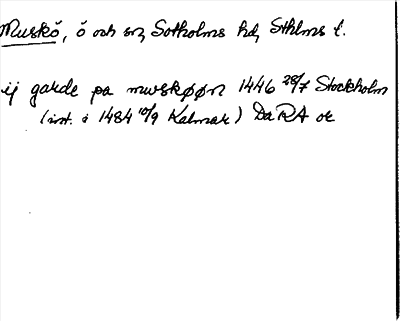 Muskö, ö och sn, Sotholms hd, Sthlms l.
ij garde pa muskøøn 1446 28/7 Stockholm
(inst. i 1484 10/9 Kalmar) Da RA or